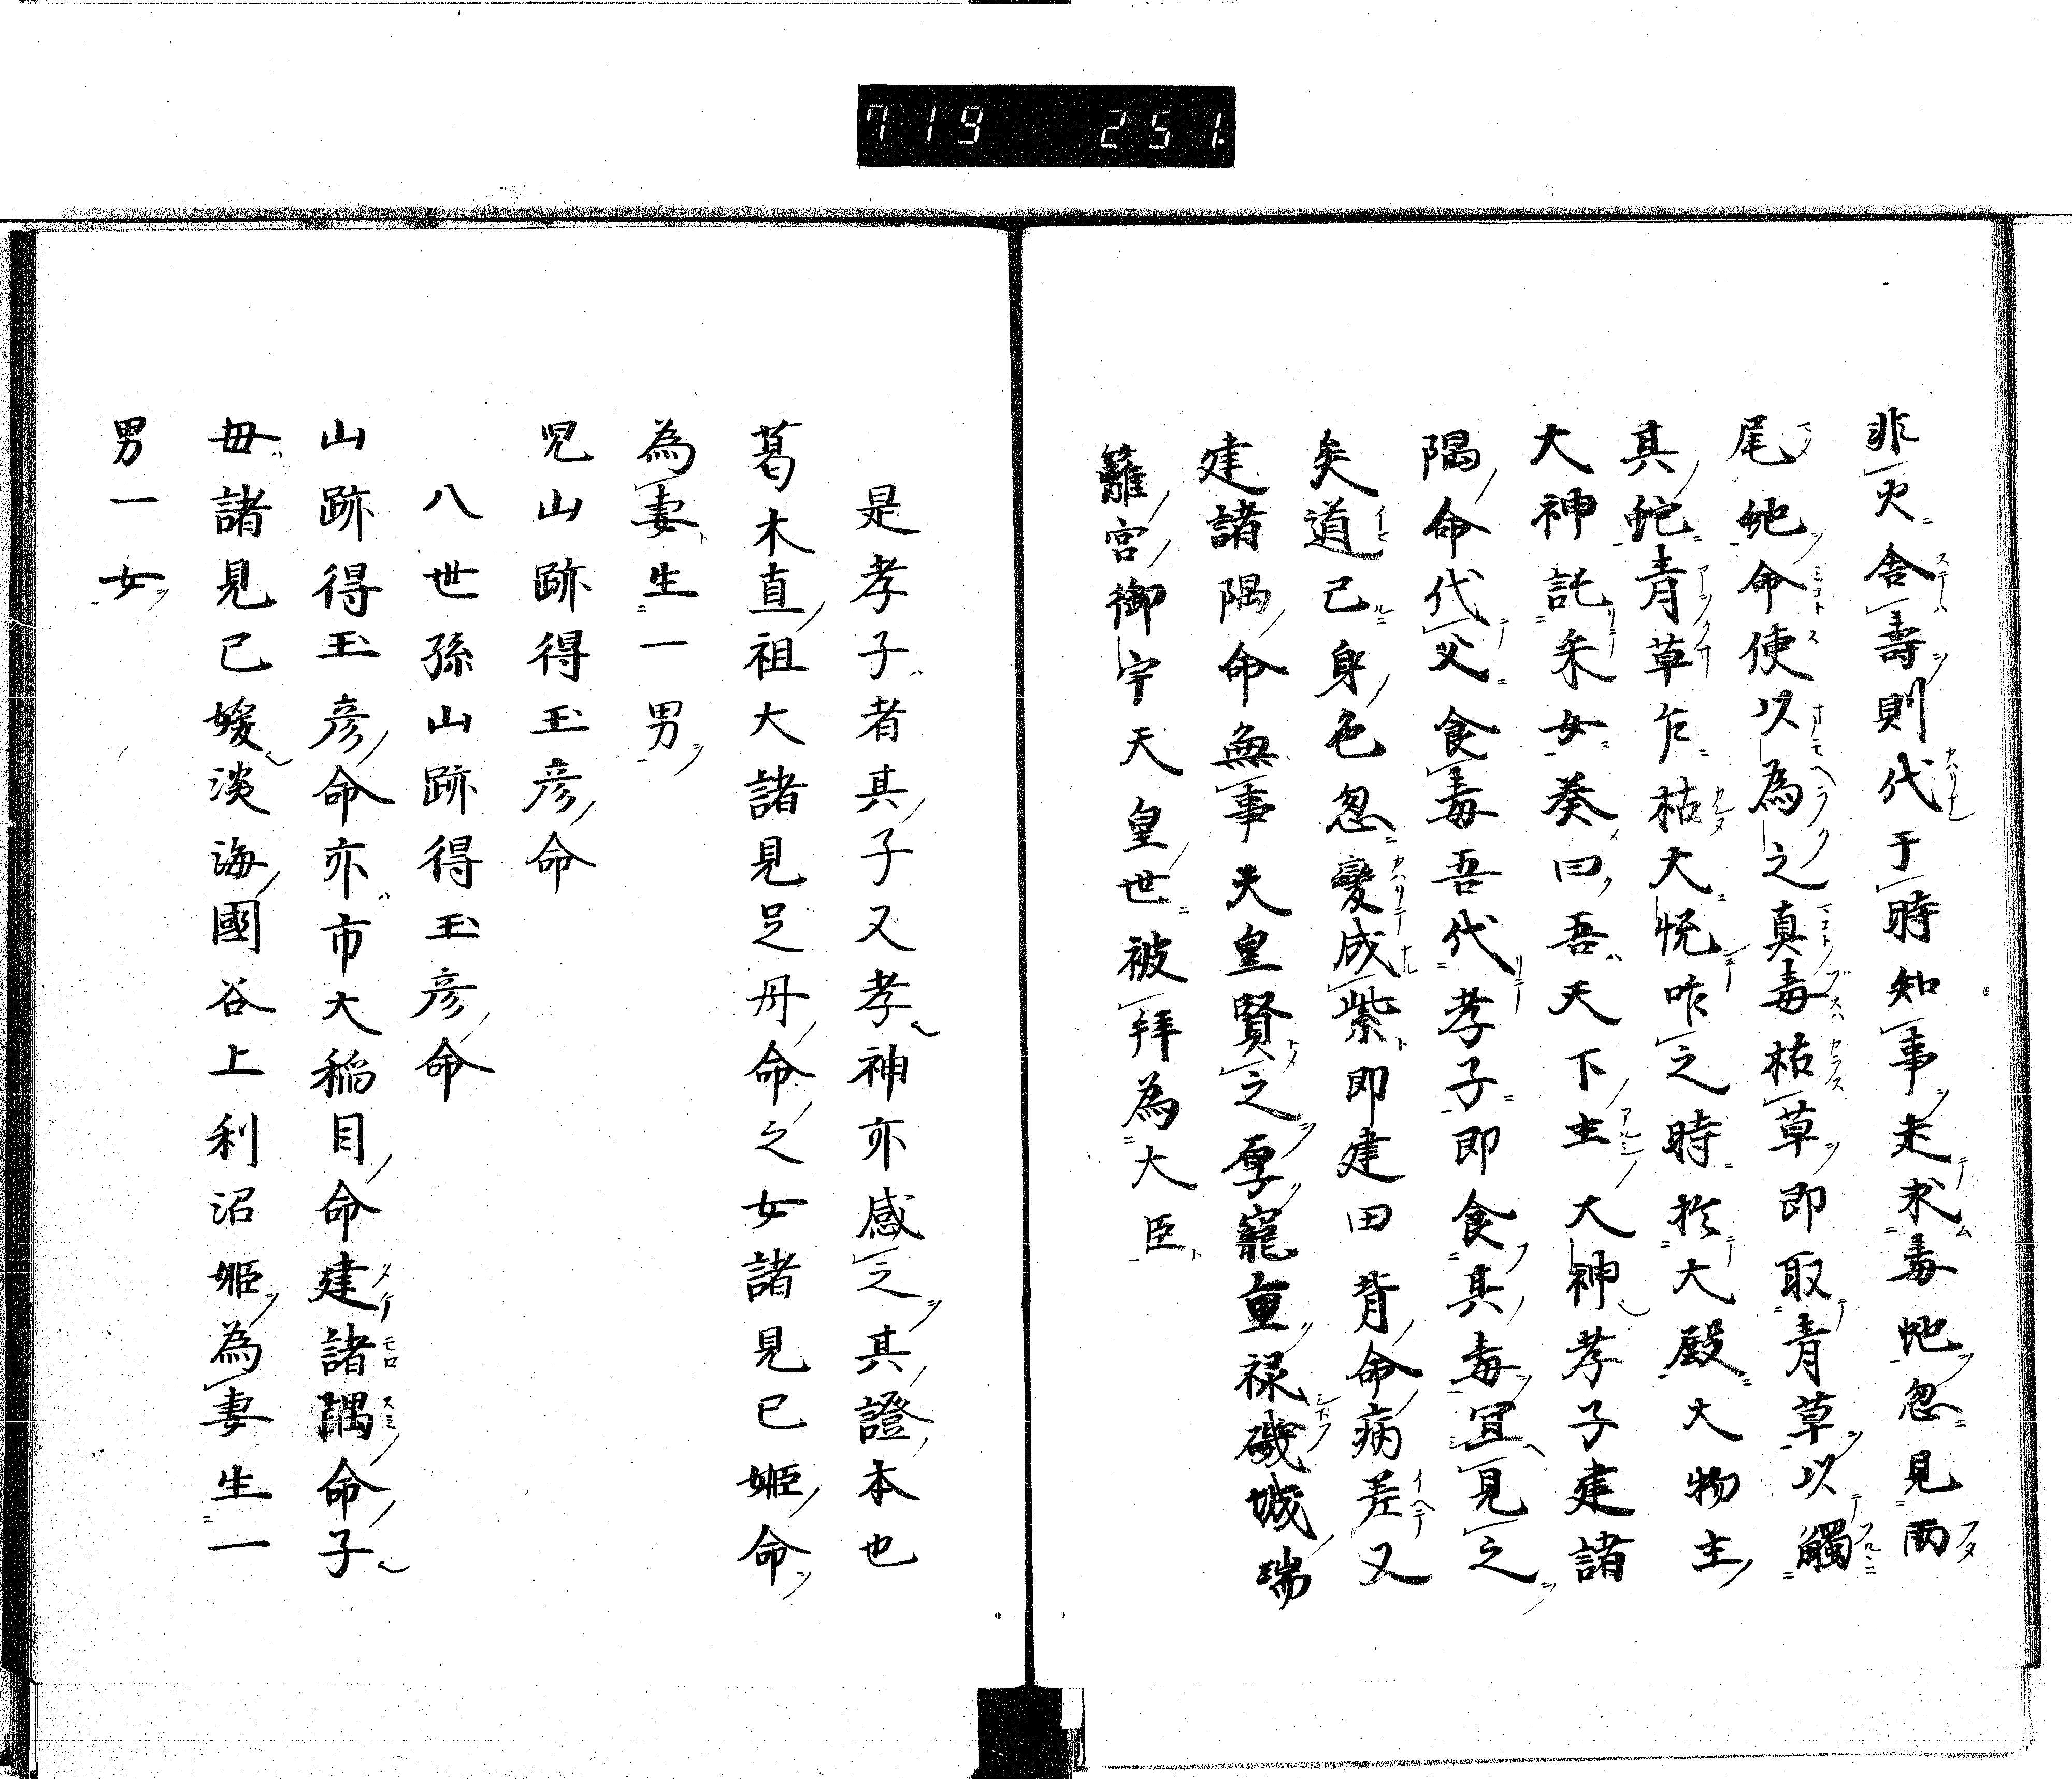 719 251.
非灾舎壽則代于時知事走求毒虵忽見両
尾虵命使以為之真毒枯草即取青草以觸
其虵青草乍枯大悦咋之時於大殿大物主
大神託釆女奏曰吾天下主大神孝子建諸
隅命代父食毒吾代孝子即食其毒宜見之
矣道己身色忽變成紫即建田背命病差又
建諸隅命無事天皇賢之厚寵重禄磯城瑞
籬宮御宇天皇世被拝為大臣
是孝子者其子又孝神亦感之其證本也
葛木直祖大諸見足丹命之女諸見己姫命
為妻生一男
児山跡得玉彦命
八世孫山跡得玉彦命
山跡得玉彦命亦市大稲目命建諸隅命子
毋諸見己媛淡海國谷上利沼姫為妻生一
男一女